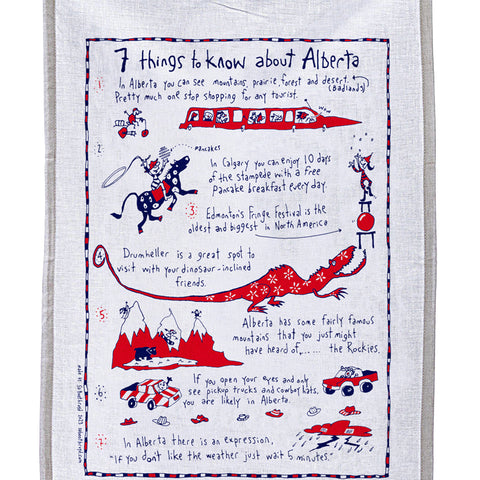 7 things to know about Alberta
1.
In Alberta you can see mountains, prairie, forest and desert.
(Badlands)
Pretty much one stop shopping for any tourist.
wow
2.
pancakes
In Calgary you can enjoy 10 days
of the stampede with a free
pancake breakfast every day.
3.
Edmonton's Fringe Festival is the
oldest and biggest in North America
4.
Drumheller is a great spot to
visit with your dinosaur-inclined
friends.
5.
Alberta has some fairly famous
mountains that you just might
have heard of...... the Rockies.
6.
If you open your eyes and only
see pickup trucks and cowboy hats,
you are likely in Alberta.
7.
In Alberta there is an expression,
"If you don't like the weather just wait 5 minutes."